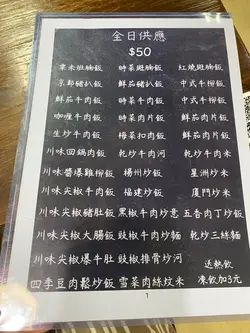 全日供應
$50
粟米斑腩飯 時菜斑腩飯 紅燒斑腩飯
京都豬扒飯 鮮茄豬扒飯 中式牛柳飯
鮮茄牛肉飯 時菜牛肉飯 中式牛柳飯
咖喱牛肉飯 時菜肉片飯 鮮茄肉片飯
生炒牛肉飯 梅菜扣肉飯 鮮茄肉片飯
川味回鍋肉飯 乾炒牛肉河 乾炒牛肉米
川味醬爆雞柳飯 楊州炒飯 星洲炒米
川味尖椒牛肉飯 福建炒飯 廈門炒米
川味尖椒豬肚飯 黑椒牛肉炒意 五香肉丁炒飯
川味尖椒大腸飯 豉椒牛肉炒麵 乾炒三絲麵
川味尖椒爆牛肚 豉椒排骨炒河
四季豆肉鬆炒飯 雪菜肉絲炆米
送熱飲
凍飲加3元
1